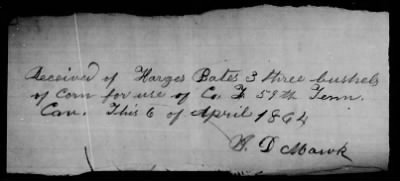 Received of Harges Bates 3 three bushels
of corn for use of Co F 59th Tenn.
Cav. This 6 of April 1864
D Mawk